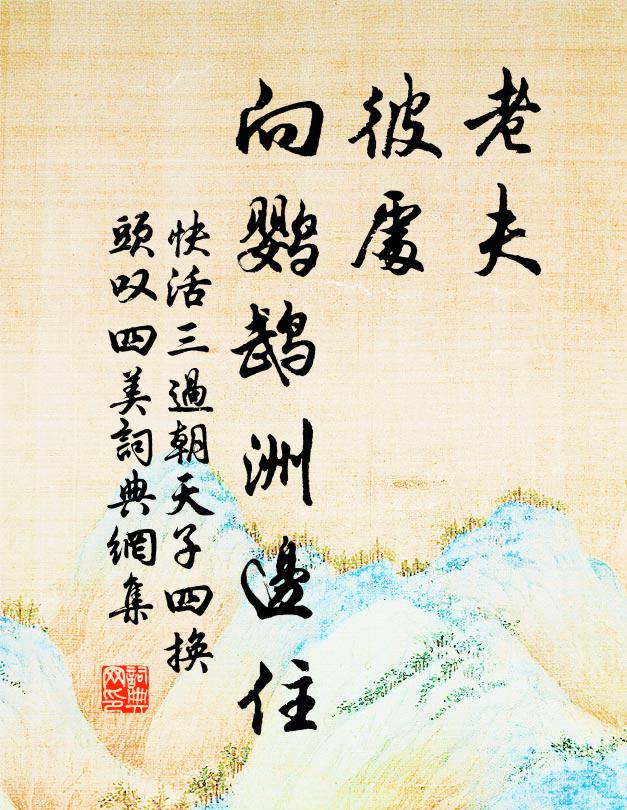 老夫
彼處
向鹦鹉洲邊住
快活三過朝天子四换
頭叹四美詞典網集
詞典
网印